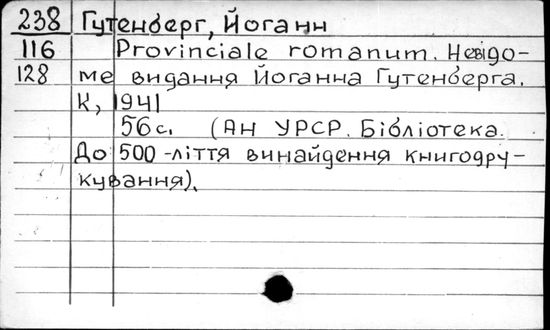 238 Гутенберг, Йоганн
116 Provinciale romanum. Невідо-
128 ме видання Йоганна Гутенберга.
К, 1941
56с. (АН УРСР. Бібліотека.
До 500-ліття винайдення книгодру-
кування).